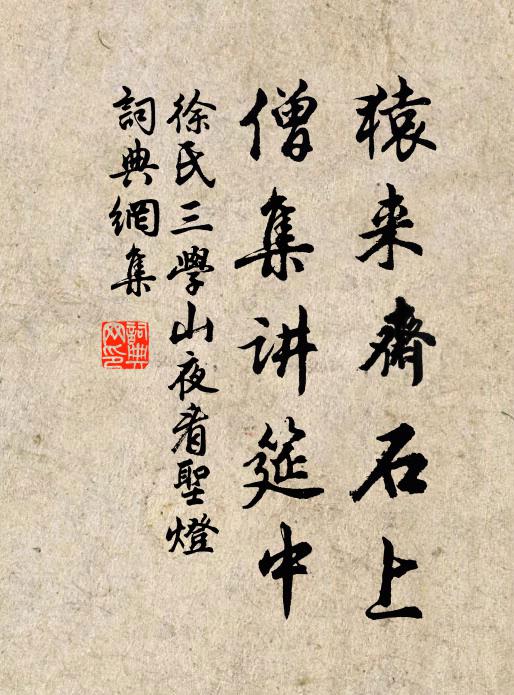 猿来齋石上
僧集讲筵中
徐氏三學山夜看聖燈
詞典網集
詞典网印